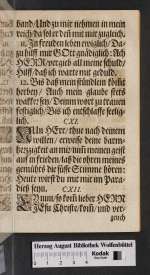 hand. Und zu mir nehmen in mein
reich da sol er deß mit mir zugleich.
11. In freuden leben ewiglich / Da
zu hilff mir GOtt gnädiglich: Ach
HERR vergieb all meine schuld /
Hilff / daß ich warte mit gedult.
12. Biß daß mein stündlein
herbey / Auch mein glaube stets
wacker sey / Deinem wort zu trauen
festiglich / Biß ich entschlaffe selig-
lich.
CXI.
NUn HErr / thue nach deinem
willen / erweise deine barm-
hertzigkeit an mir nimm meinen geist
auff in frieden / laß die ohren meines
gemüths die süsse Stimme hören:
Heute wirst du mit mir im Para-
dieß seyn.
CXII.
KOmm, liebster HERR
JEsu Christe / komm / und ver-
Herzog August Bibliothek Wolfenbüttel
Kodak